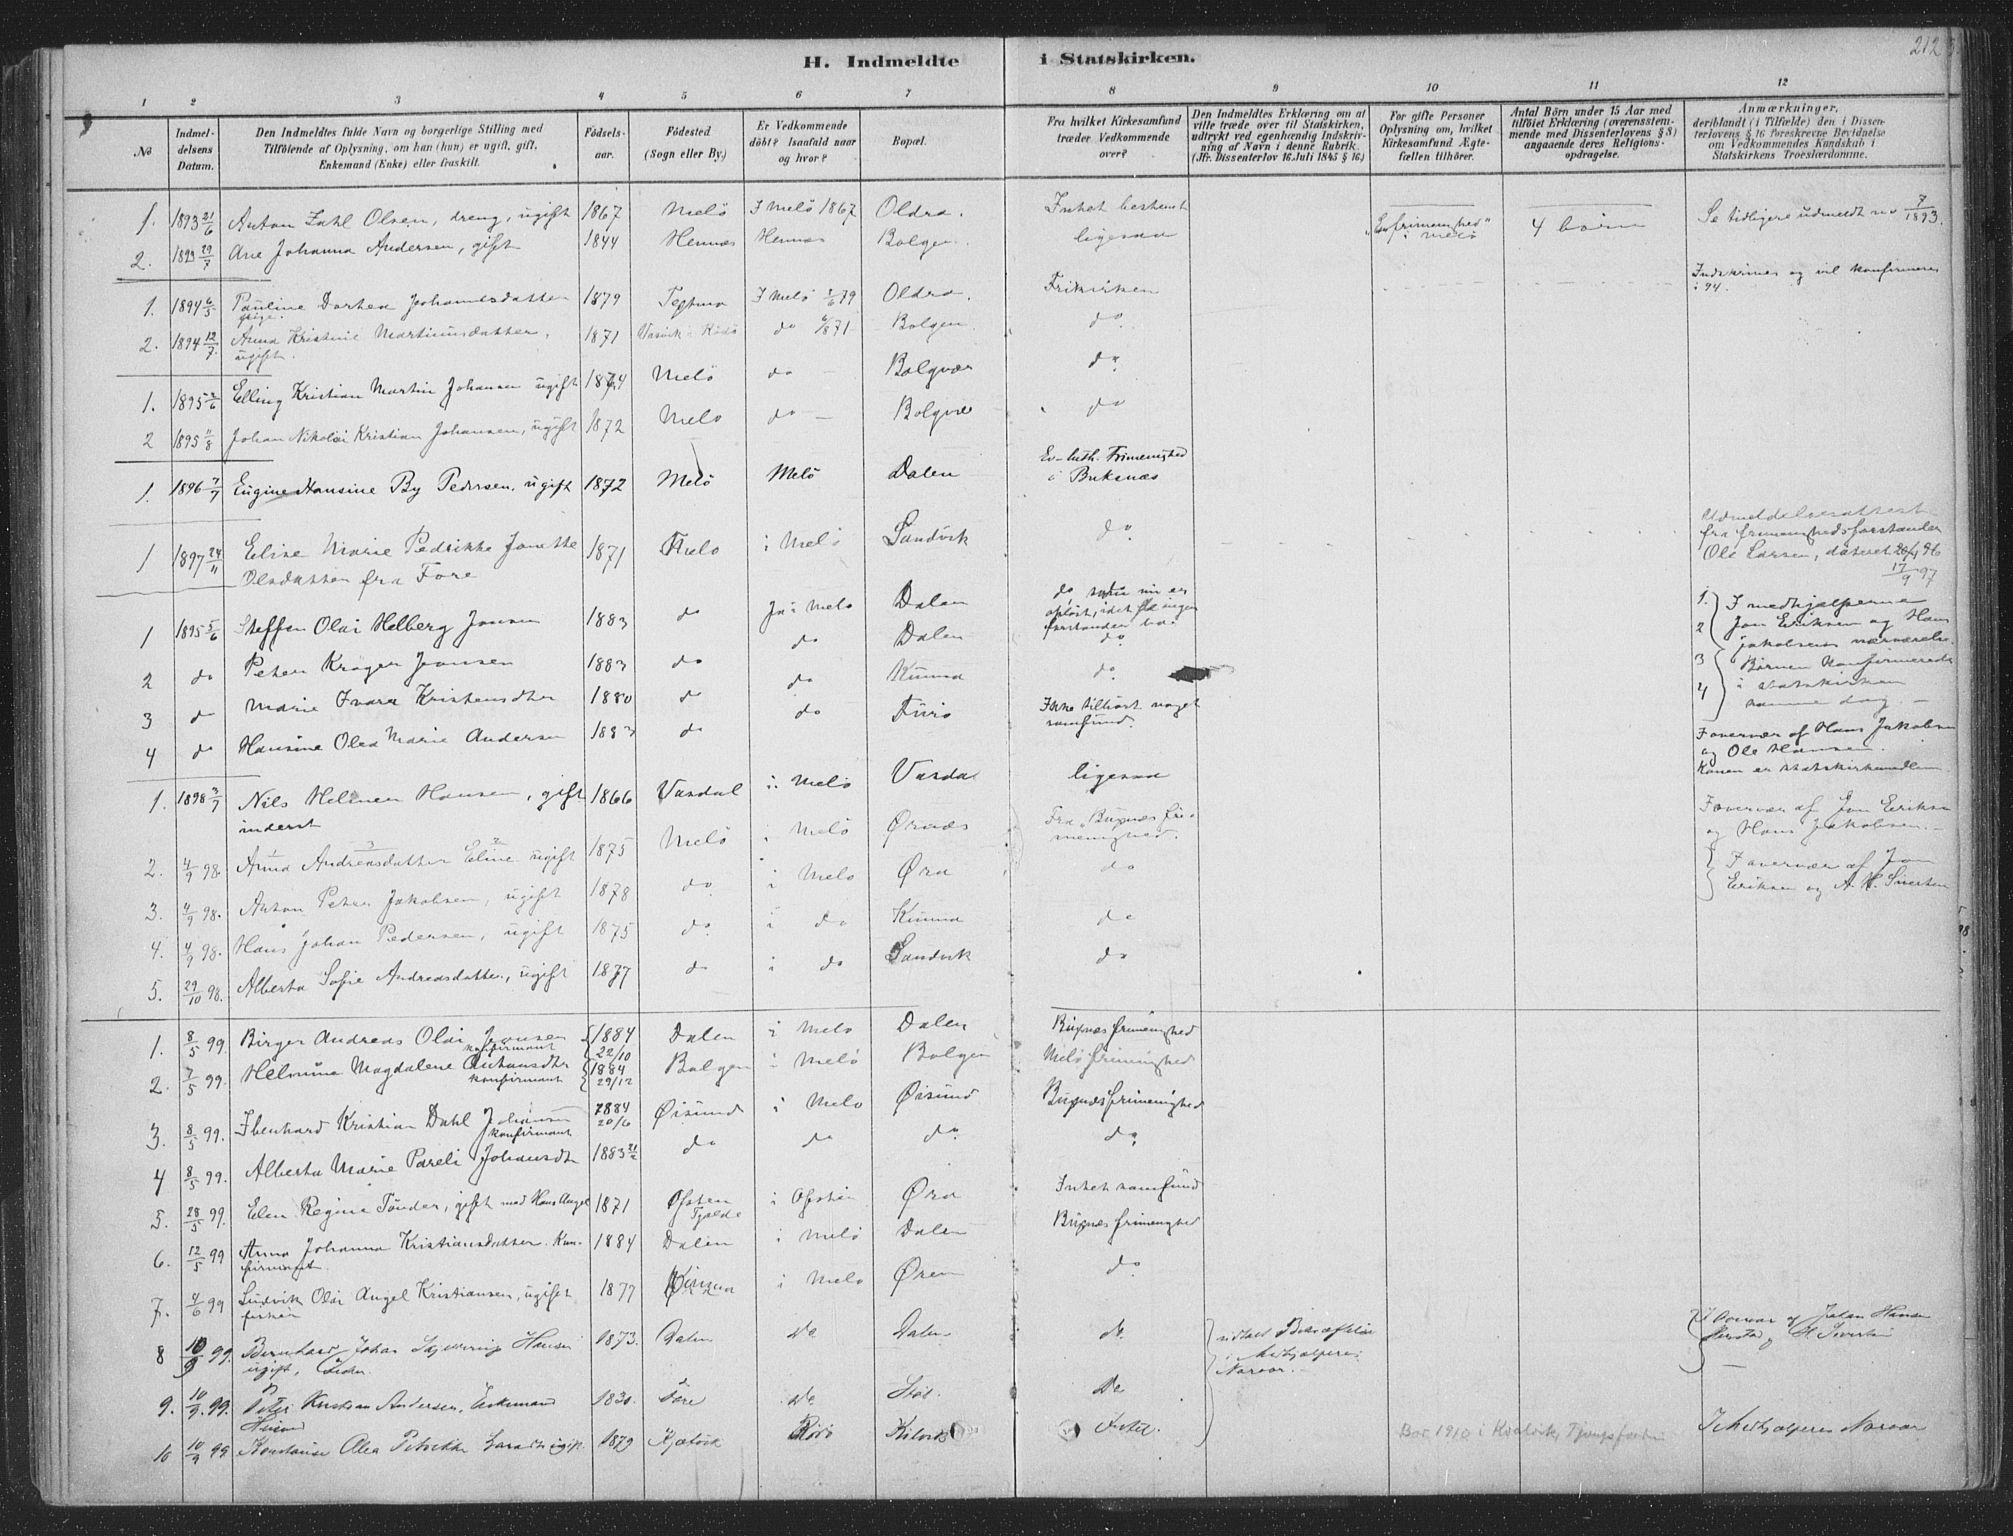 212
H. Indmeldte i Statskirken.
1 2 3 4 5 6 7 8 9 10 11 12
No
Indmeldelsens Datum.
Den Indmeldtes fulde Navn og borgerlige Stilling med
Tilföiende af Oplysning, om han (hun) er ugift, gift,
Enkemand (Enke) eller fraskilt.
Födselsaar.
Födested
(Sogn eller By.)
Er Vedkommende
döbt? Isaafald naar
og hvor?
Bopæl.
Fra hvilket Kirkesamfund
træder Vedkommende
over?
Den Indmeldtes Erklæring om at
ville træde over til Statskirken,
udtrykt ved egenhændig Indskriv-
ning af Navn i denne Rubrik.
(Jfr. Dissenterlov 16 Juli 1845 § 16.)
For gifte Personer
Oplysning om, hvilket
Kirkesamfund Ægte-
fællen tilhörer.
Antal Börn under 15 Aar med
tilföiet Erklæring (overensstem-
mende med Dissenterlovens § 8)
angaaende deres Religions-
opdragelse.
Anmærkninger,
deriblandt (i Tilfælde) den i Dissen-
terlovens § 16 foreskrevne Bevidnelse
om Vedkommendes Kundskab i
Statskirkens Troeslærdomme.
1. 1893 21/6 Anton Dahl Olsen, dreng, ugift 1867 Melö I Melö 1867 Oldra. Intet bestemt Se tidligere udmeldt no 7/1893.
2. 1893 29/7 Ane Johanna Andersen, gift 1844 Hemnæs Hemnæs Bolgen. ligesaa "Ev frimenighed" i Melö 4 börn
1. 1894 6/5 Pauline Dorthea Johannesdatter pige. 1879 I Melö 79 Oldra. Frikirken Indskrives og vil konfirmeres i 94.
2. 1894 12/7 Anna Kristine Martinusdatter, ugift. 1871 do 71 Bolgen. do
1. 1895 2/6 Elling Kristian Martin Johansen ugift 1874 Melö do Bolgvær do
2 1895 11/8 Johan Nikolai Kristian Johansen, ugift 1872 Melö do Bolgvæ do
1. 1896 7/7 Eugine Hansine By Pedersen, ugift 1872 Melö Melö Dalen Ev-luth. Frimenighed i Buksnæs
1 1897 24/11 Eline Marie Pedrikke Jonette Olsdatter fra Fore 1871 Melö i Melö Sandvik do Udmeldelsesattest fra frimenighedsforstander Ole Larsen, dateret 20/4 96 17/9 97
1 1895 5/6 Steffen Olai Helberg Jonsen 1883 do Ja i Melö Dalen
2 do Peter Kroger Jonsen 1883 do do Dalen do
3 do Marie Ivara Kristensdtr 1880 do do Kunna do
4 do Hansine Olea Marie Andersen 1883 do do Furö Ikke tilhört noget samfund.
1. 2. I medhjælperne Jon Eriksen og Hans Jakobsens nærværelse.
3 4 Börnen konfirmeredes i statskirken samme dag.
1. 1898 3/7 Nils Helmer Hansen, gift inderst 1866 Vasdal i Melö Vasdal ligesaa I overvær af Hans Jakobsen og Ole Hansen. Konen er statskirkemedlem.
2. 4/9 98. Anna Andreasdatter Eline ugift 1875 Melö i Melö Ørnæs Fra Buxnæs frimenighed. I overvær af Jon Eriksen og Hans Jakobsen.
3. 4/9 98. Anton Peter Jakobsen, ugift 1878 do i Melö Øra do I overvær af Jon Eriksen og A. H. Sivertsen
4. 4/9 98. Hans Johan Pedersen, ugift 1875 do i do Kunna do
5. 29/10 98. Alberta Sofie Andreasdatter, ugift 1877 do i do Sandvik do
1. 8/5 99. Birger Andreas Olai Jensen konfirmant 1884 22/10 Dalen i Melö Dalen Buxnæs frimenighed
2. 7/5 99. Helmine Magdalene konfirmant 1884 29/12 Bolgen i Melö Bolgen Melö frimenighed
3. 8/5 99. Ibenhard Kristian Dahl Johansen konfirmant 1884 20/6 Øisund i Melö Øisund Buxnæs frimenighed
4 8/5 99. Alberta Marie Pareli Johansdtr 1883 do do do do
5. 28/5 99. Elen Regine Tönder, gift med Hans Angel 1871 Ofoten Tjelde i Ofoten Øra Intet samfund
6. 12/5 99 Anna Johanna Kristiansdatter. Konfirmant. 1884 Dalen i Melö Dalen Buxnæs frimenighed
7. 4/6 99 Ludvik Olai Angel Kristiansen, ugift fisker 1877 i Melö Øren do
8 10/9 99. Bernhard Johan Hansen ugift, 1873. Dalen do Dalen do Johan Hansen
9. 10/9. 99. Peter Kristian Andersen, Enkemand 1830. Fore do Do
10 10/9 99 Konstanse Olea Petrikke ugift. 1879 Rödö Intet. Bor 1910 i Kvalvik, I Medhjælperes Nærvær